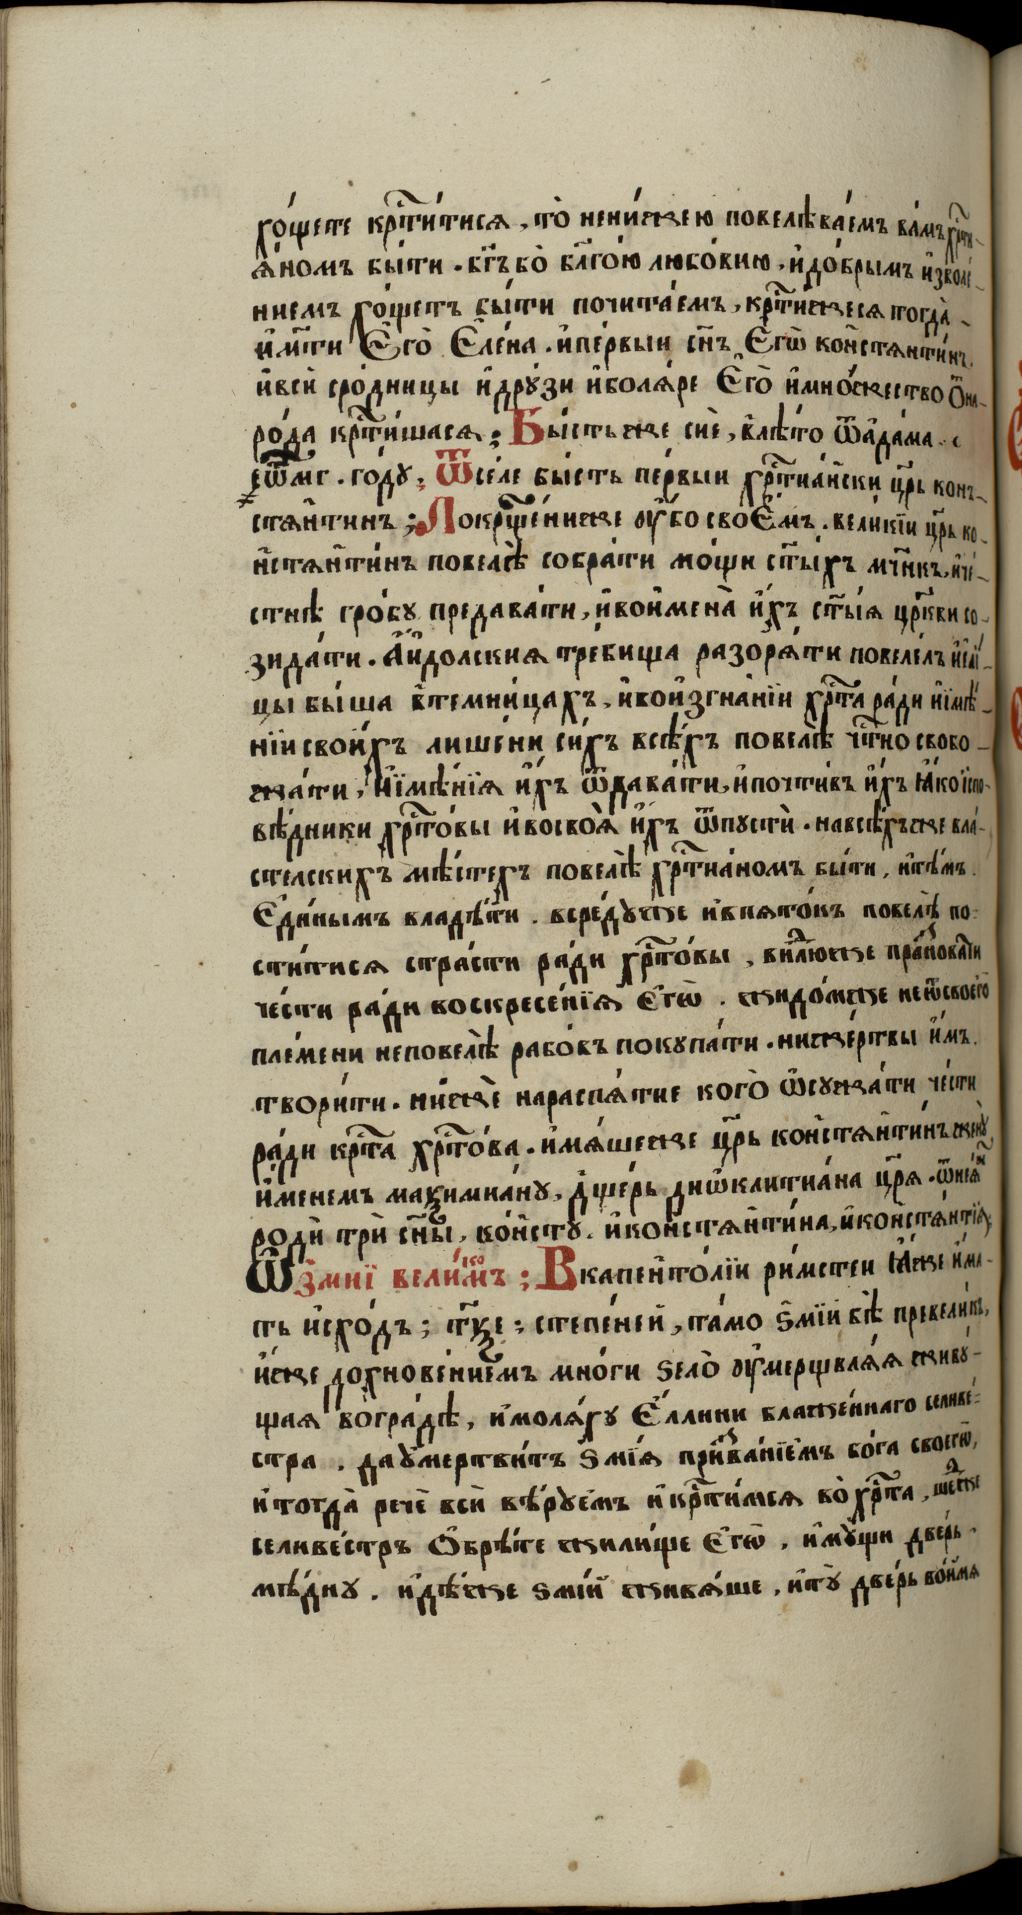 хо́щете кр҃ти́тися, то̀ нену́жею повелѣва́емъ ва́мъ хр҃ти-
я́номъ бы́ти. бг҃ъ бо̀ бл҃го́ю любо́вию, и҆до́брымъ и҆зволе́-
ниемъ хо́щетъ бы́ти почита́емъ, кр҃ти́жеся тогда̀
и҆м҃ти Є҆го̀ Є҆ле́на. и҆пе́рвыи сн҃ъ Є҆гѡ̀ ко́нстянти́нъ.
и҆вси́ сро́дницы и҆дру́зи и҆боля́ре Є҆го̀ и҆мно́жество ѿна-
ро́да кр҃ти́шася; Бы́сть же сиѐ, влѣ́то ѿада́ма.
҂еѿмг. го́ду, Ѿсе́ле бы́сть пе́рвыи хр҃тиа́нски цр҃ь конъ-
стянти́нъ; Покр҃ще́ниже оу҆́бо своЄ́мъ. вели́кїи цр҃ь ко-
нстянти́нъ повелѣ̀ собра́ти мо́щи ст҃ы́хъ мч҃нкъ, и҆че-
стнѣ̀ гро́бу предава́ти, и҆воимена̀ и҆́хъ ст҃ы́я цр҃кви со-
зида́ти. А҆и҆́долския тре́бища разоря́ти повеле́лъ и҆ели́-
цы бы́ша втемни́цахъ, и҆воизгна́нїи хр҃та̀ ра́ди и҆и҆мѣ́-
нїи свои́хъ лише́ни си́хъ всѣ́хъ повелѣ̀ чт҃но свобо-
жа́ти, и҆и҆мѣ́нїя и҆́хъ ѿдава́ти, и҆почти́въ и҆́хъ ꙗ҆́ко испо-
вѣ́дники хр҃то́вы и҆восвоя̀ и҆́хъ ѿпустѝ. навсѣ́хъже вла́-
стелскихъ мѣ́стехъ повелѣ̀ хр҃тиа́номъ бы́ти, и҆тѣ́мъ
Є҆ди́нымъ владѣ́ти. всре́дуже и҆впято́къ повелѣ̀ по-
сти́тися стра́сти ра́ди хр҃то́вы, внл҃юже пра́зновати
че́сти ра́ди воскресе́нїя Є҆гѡ̀. жидо́мже неѿсвоего̀
пле́мени неповелѣ̀ рабо́въ покупа́ти. нижертвы и҆́мъ
твори́ти. ни́жѐ нараспя́тие кого̀ ѡ҆сужа́ти че́сти
ра́ди кр҃та̀ хр҃то́ва. и҆мя́шеже цр҃ь констянти́нъ жену̀
и҆́менемъ маѯимиа́ну, дще́рь диѡклитиа́на цр҃я. ѿнея́ж
родѝ трѝ сн҃ы̀, ко́нсту. и҆констянти́на, и҆констя́нтїя;
Ѿзмиї вели́комъ; Вкапенто́лїи ри́мстеи ꙗ҆́же и҆ма-
ть и҆схо́дъ; тѯе; степе́ней, та́мо ѕ҆мїй бѣ̀ превели́къ,
и҆́же дохнове́ниемъ мно́ги ѕело̀ оу҆мерщвля́я живу́-
щая вогра́дѣ, и҆моля́ху Є҆́ллини блаже́ннаго селиве́-
стра. дау҆мертви́тъ ѕмїя̀ призва́нїемъ бо́га своегѡ̀,
и҆тогда̀ речѐ всѝ вѣ́руемъ и҆кр҃ти́мся во̀ хр҃та̀, шедже
селиве́стръ Ѻ҆брѣ́те жили́ще Є҆гѡ̀, и҆му́щи две́рь
мѣ́дну. и҆дѣ́же ѕмі́й живя́ше, и҆ту̀ две́рь во́имя